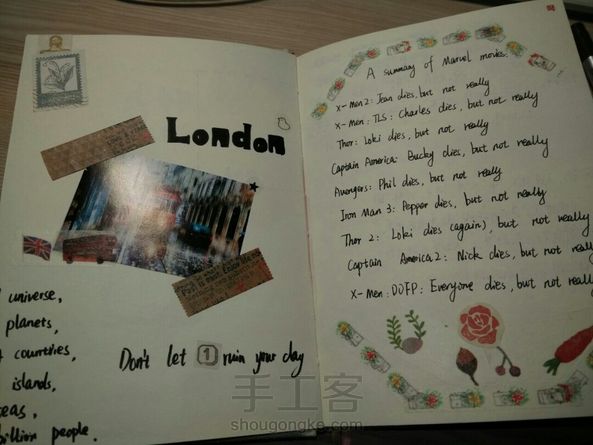 London
universe,
planets,
countries,
islands,
billion people.
Don't let 1 ruin your day
A summary of Marvel movies.
X-men2: Jean dies, but not really
X-men: TLS: Charles dies, but not really
Thor: Loki dies, but not really
Captain America: Bucky dies, but not really
Avengers: Phil dies, but not really
Iron Man 3: Pepper dies, but not really
Thor 2: Loki dies (again), but not really
Captain America2: Nick dies, but not really
X-Men: DOFP: Everyone dies, but not really
手工客
shougongke.com